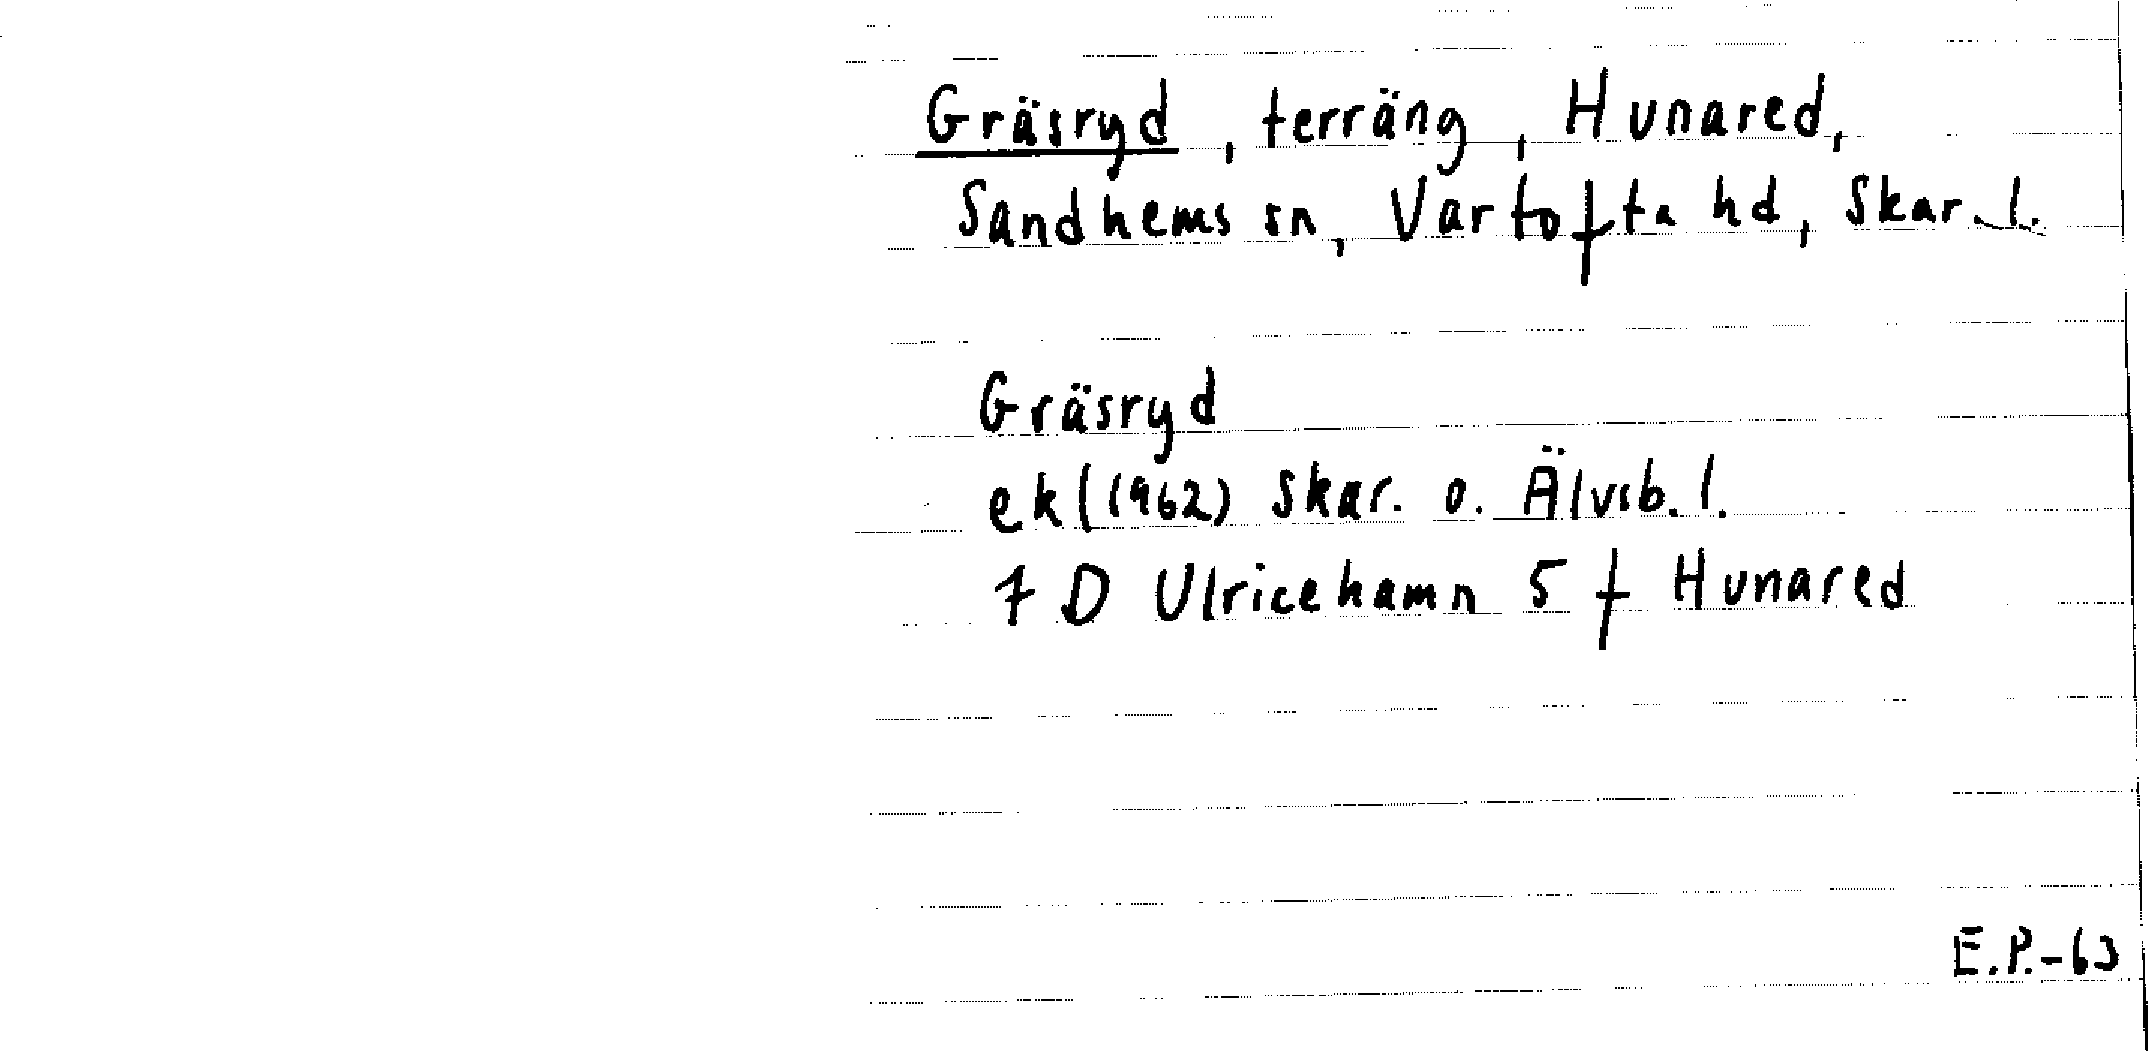 Gräsryd, terräng, Hunared,
Sandhems sn, Vartofta hd, Skar. l.
Gräsryd
ek (1962) Skar. o. Älvsb. l.
7 D Ulricehamn 5 f Hunared
E.P.-63